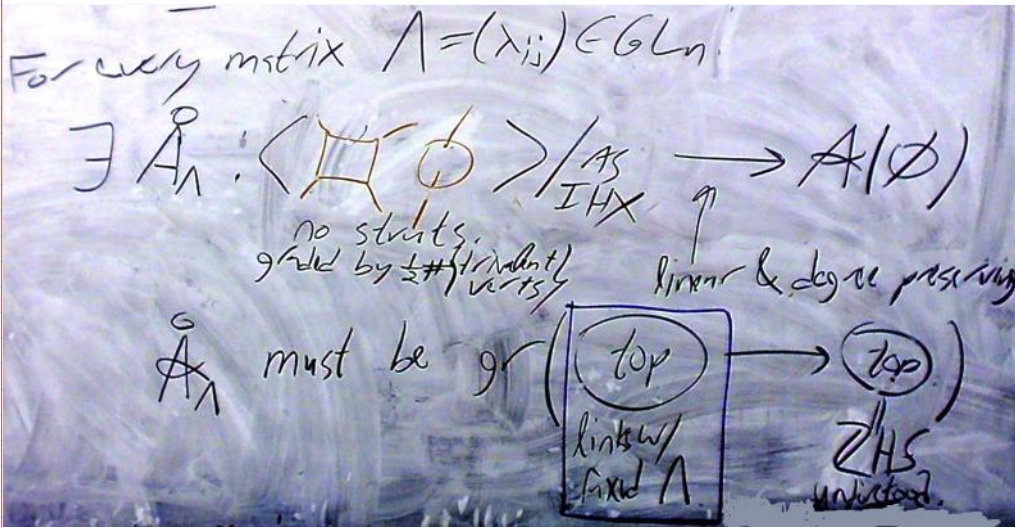 For every matrix Λ = (λij) ∈ GLn.
∃ ÅΛ : < > / AS IHX → A(∅)
no struts.
graded by ½ #{trivalent verts}
linear & degree preserving
ÅΛ must be gr( top → top )
links w/ fixed Λ.
ZHS
understood.